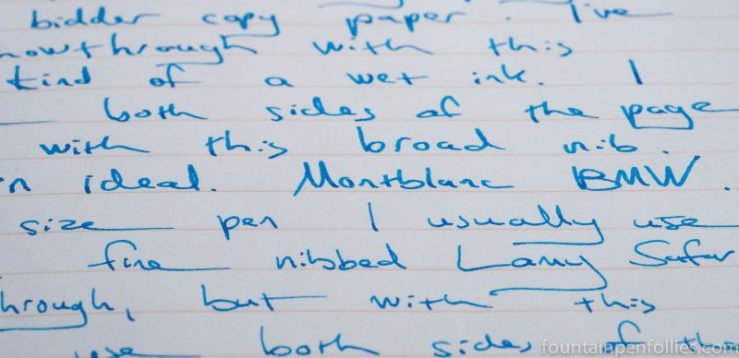 bidder copy paper. I've
howthrough with this
kind of a wet ink. I
both sides of the page
with this broad nib.
n ideal. Montblanc BMW.
size pen I usually use
fine nibbed Lamy Safar
hrough, but with this
use both sides of the
fountainpenfollies.com